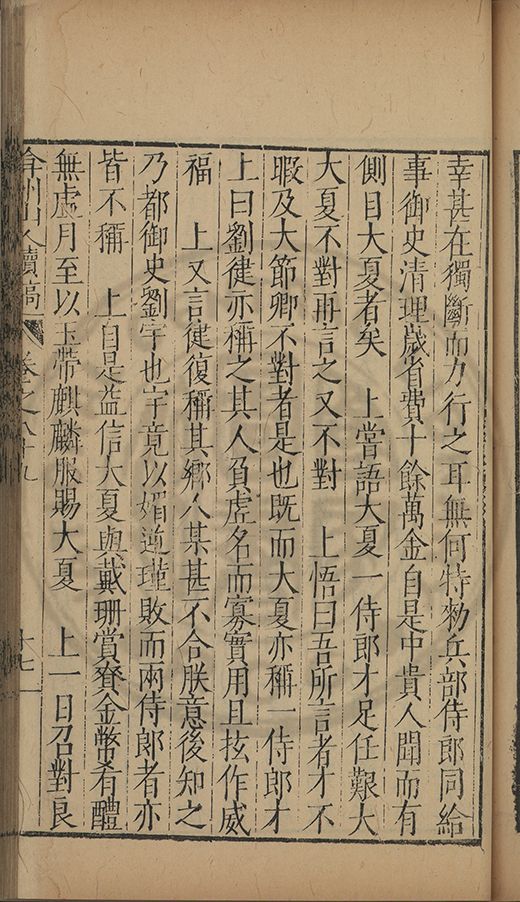 幸甚在獨斷而力行之耳無何特勑兵部侍郎同給
事御史清理歲省費十餘萬金自是中貴人聞而有
側目大夏者矣　上嘗語大夏一侍郎才足任艱大
大夏不對再言之又不對　上悟曰吾所言者才不
暇及大節卿不對者是也既而大夏亦稱一侍郎才
上曰劉健亦稱之其人負虛名而寡實用且㧓作威
福　上又言健復稱其鄉人某甚不合朕意後知之
乃都御史劉宇也宇竟以媚逆瑾敗而兩侍郎者亦
皆不稱　上自是益信大夏與戴珊賞賚金幣肴醴
無虛月至以玉帶麒麟服賜大夏　上一日召對良
弇州山人續稿　卷之八十九　十七